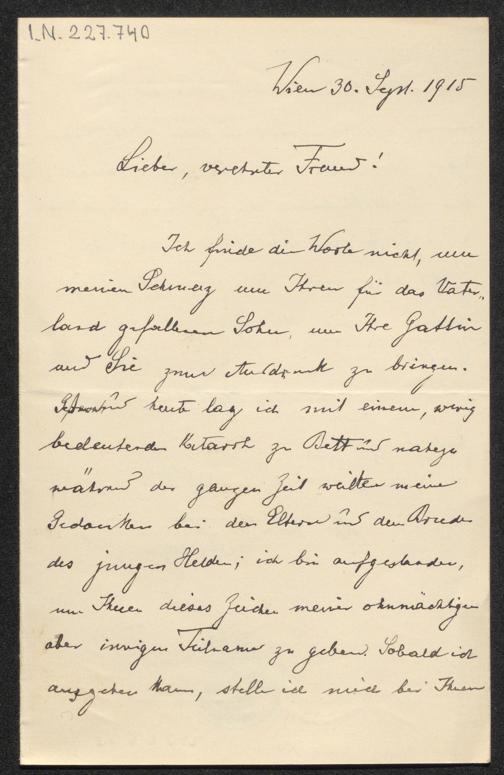 I.N. 227.740
Wien 30. Sept. 1915
Lieber, verehrter Freund!
Ich finde die Worte nicht, um
meinen Schmerz um Ihren für das Vater„
land gefallenen Sohn, um Ihre Gattin
und Sie zum Ausdruck zu bringen.
Gestern und heute lag ich mit einem, wenig
bedeutenden Katarrh zu Bett und nahezu
während der ganzen Zeit weilten meine
Gedanken bei den Eltern und dem Bruder
des jungen Helden; ich bin aufgestanden,
um Ihnen dieses Zeichen meiner ohnmächtigen
aber innigen Teilname zu geben. Sobald ich
ausgehen kann, stelle ich mich bei Ihnen